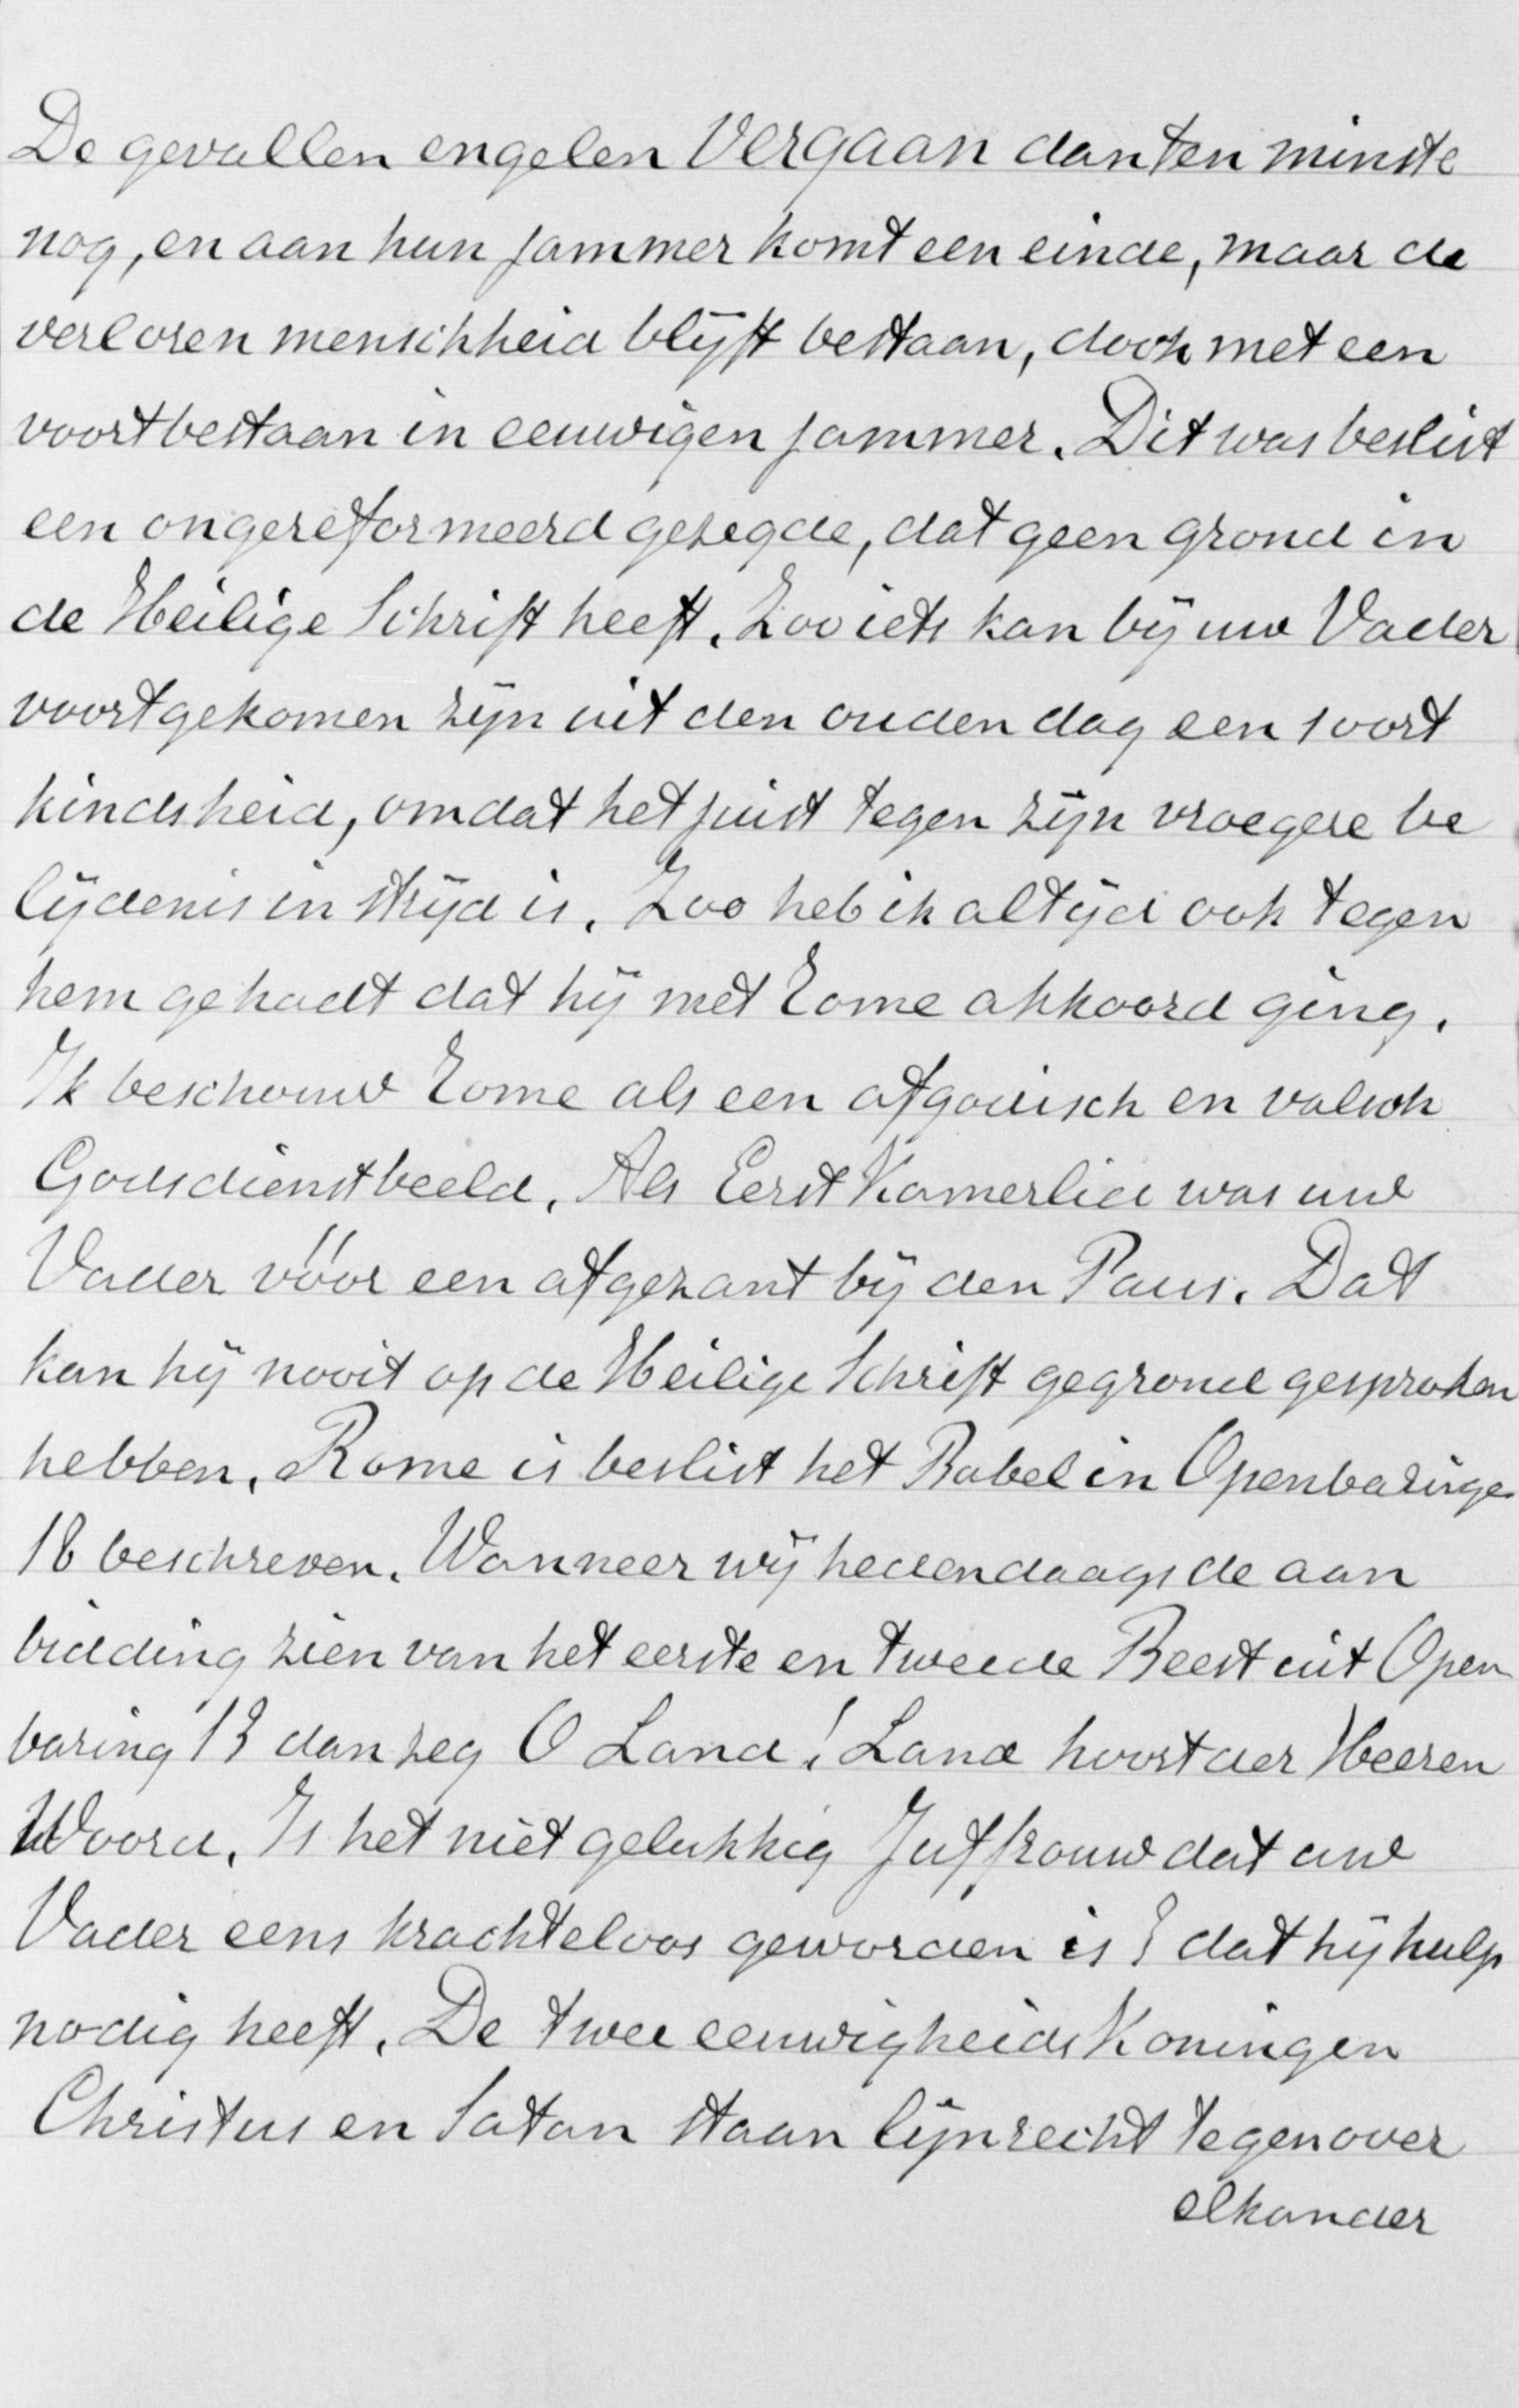 De gevallen engelen vergaan dan ten minste
nog, en aan hun jammer komt een einde, maar de
verloren menschheid blijft bestaan, doch met een
voortbestaan in eeuwigen jammer. Dit was beslist
een ongereformeerd gezegde, dat geen grond in
de Heilige Schrift heeft. Zoo iets kan bij uw Vader
voortgekomen zijn uit den ouden dag een soort
kindsheid, omdat het juist tegen zijn vroegere be
lijdenis in strijd is. Zoo heb ik altijd ook tegen
hem gehadt dat hij met Rome akkoord ging.
Ik beschouw Rome als een afgodisch en valsch
Godsdienstbeeld. Als Eerst Kamerlid was uw
Vader vóór een afgezant bij den Paus. Dat
kan hij nooit op de Heilige Schrift gegrond gesproken
hebben. Rome is beslist het Babel in Openbaringe
18 beschreven. Wanneer wij hedendaags de aan
bidding zien van het eerste en tweede Beest uit Open
baring 13 dan zeg O Land! Land hoort der Heeren
Woord. Is het niet gelukkig Juffrouw dat uw
Vader eens krachteloos geworden is & dat hij hulp
nodig heeft. De twee eeuwigheids Koningen
Christus en Satan staan lijnrecht tegenover
elkander